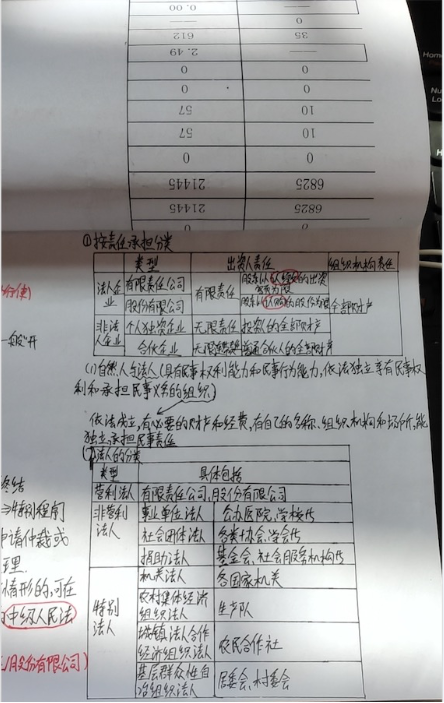 0.00
—
612
35
2.49
—
0
0
0
0
57
10
57
10
0
0
21445
6825
21445
6825
①按责任承担分类
类型 出资人责任 组织机构责任
法人企业 有限责任公司 有限责任 股东以认缴的出资额为限 全部财产
股份有限公司 股东以认购的股份为限
非法人企业 个人独资企业 无限责任 投资人的全部财产
合伙企业 无限连带 普通合伙人的全部财产
(1)自然人与法人(具有民事权利能力和民事行为能力,依法独立享有民事权
利和承担民事义务的组织)
依法成立,有必要的财产和经费,有自己的名称、组织机构和场所,能
独立承担民事责任
法人的分类
类型 具体包括
营利法人 有限责任公司,股份有限公司
非营利法人 事业单位法人 公办医院,学校等
社会团体法人 各类协会,学会等
捐助法人 基金会,社会服务机构等
特别法人 机关法人 各国家机关
农村集体经济组织法人 生产队
城镇、法人合作经济组织法人 农民合作社
基层群众性自治组织法人 居委会,村委会
终结
特别程序
申请仲裁或
理
情形的,可在
中级人民法
股份有限公司)